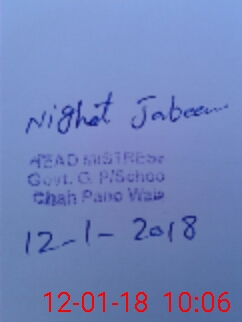 Nighat Jabeen
HEAD MISTRESS
Govt. G. P/School
Chah Pano Wala
12-1-2018
12-01-18 10:06